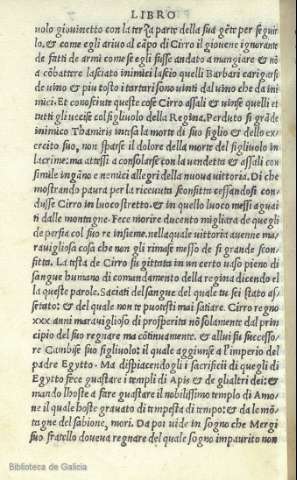 LIBRO
uolo giouinetto con la terza parte della sua gẽte per seguir
lo. & come egli ariuo al cãpo di Cirro il giouene ignorante
de fatti de armi come se egli fusse andato a mangiare & nõ
a cõbattere lasciato inimici lascio quelli Barbari carigarsi
de vino & piu tosto i tartari sono uinti dal vino che da ini
mici. Et conosciute queste cose Cirro assali & uinse quelli et
tutti gli uccise col figliuolo della Regina. Perduto si grãde
inimico Thamiris intesa la morte di suo figlio & dello ex
ercito suo, non sparse il dolore della morte del figliuolo in
lacrime: ma attessi a consolarse con la vendetta & assali con
simile ingãno e nemici allegri della nuoua uittoria. Di che
mostrando paura per la riceuuta sconfitta cessandosi con
dusse Cirro in luoco stretto. & in quello luoco messi aguai
ti dalle montagne. Fece morire ducento migliara de quegli
de persia col suo re insieme. nella quale uittoria auenne ma
rauigliosa cosa che non gli rimase messo de si grande scon
fitta. La testa de Cirro fu gittata in un certo uaso pieno di
sangue humano di comandamento della regina dicendo el
la queste parole. Saciati del sangue del quale tu sei stato as
setato: & del quale non te puotesti mai satiare. Cirro regno
xxx anni marauiglioso di prosperita nõ solamente dal prin
cipio del suo regnare ma cõtinuamente. & allui fu successo-
re Cambise suo figliuolo: il quale aggiunse a l'imperio del
padre Egytto. Ma dispiacendogli i sacrificii de quegli di
Egytto fece guastare i templi di Apis & de gli altri dei: &
mando l'hoste a fare guastare il nobilissimo templo di Amo-
ne il quale hoste grauato di tempesta di tempo: & da le mõ-
tagne del sabione, mori. Da poi uide in sogno che Mergi
suo fratello doueua regnare del quale sogno impaurito non
Biblioteca de Galicia